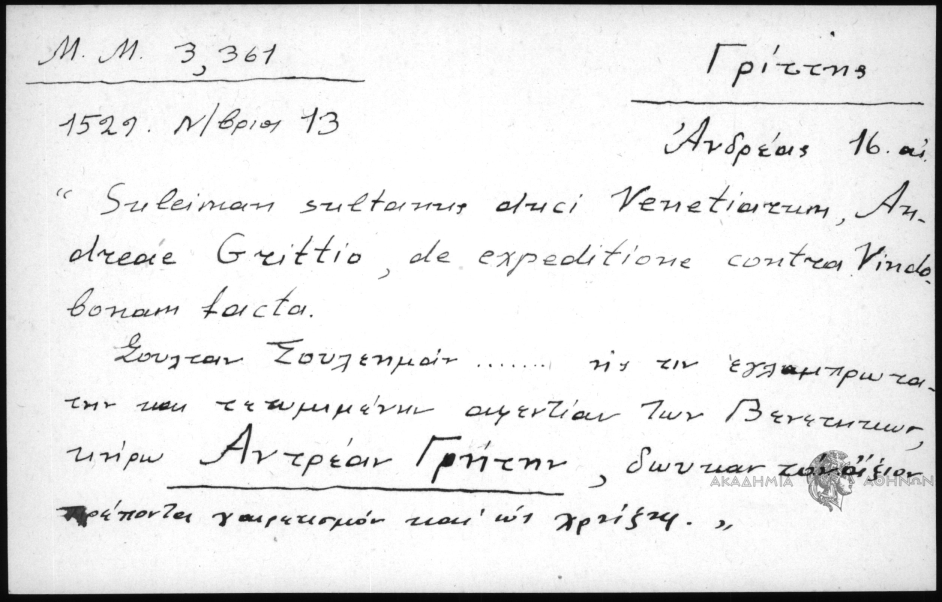 Μ. Μ. 3, 361
Γρίττης
1529. Ν/βριος 13
Ἀνδρέας 16. αἰ.
“ Suleiman sultanus duci Venetiarum, An-
dreae Grittio, de expeditione contra Vindo-
bonam facta.
Σουλταν Σουλεημάν ........ ηἰς τιν ἐγλαμπρωτα-
την και τετιμιμένην αφεντίαν των Βενετηκως,
κιήρω Αντρέαν Γρήτην, δωυκαν τὸν ἄξιον
πρέποντα χαιρετισμόν και ὡς χρήζει. „
ΑΚΑΔΗΜΙΑ ΑΘΗΝΩΝ